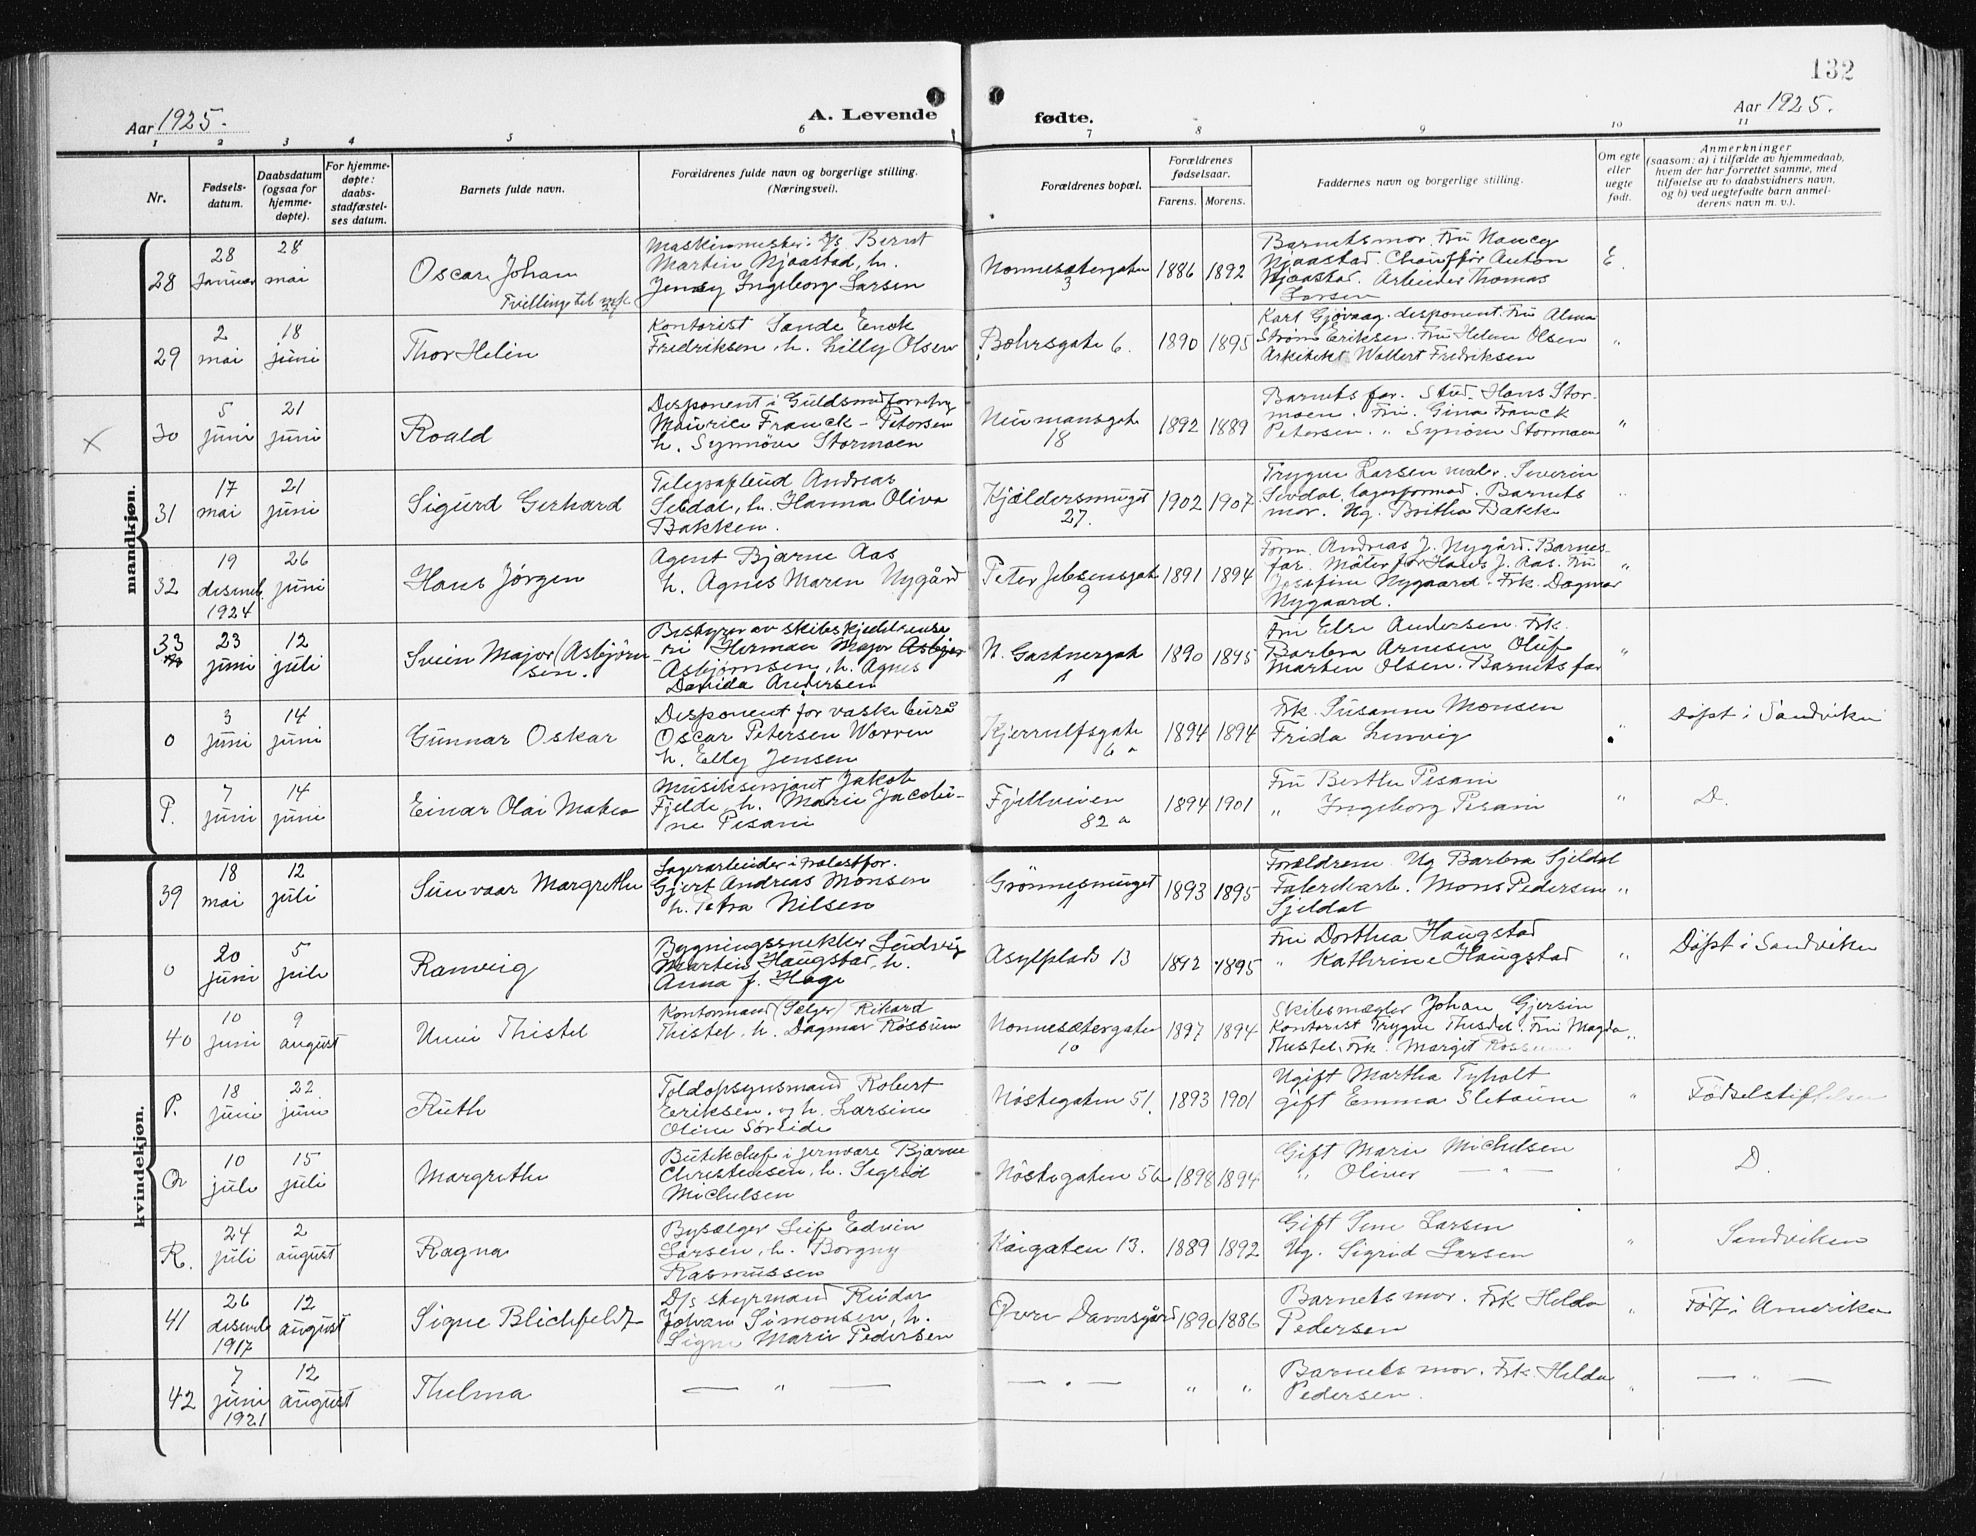 132
Aar 1925.
A. Levende
fødte.
Aar 1925.
1 2 3 4 5 6 7 8 9 10 11
Nr.
Fødsels-
datum.
Daabsdatum
(ogsaa for
hjemme-
døpte).
For hjemme-
døpte:
daabs-
stadfæstel-
ses datum.
Barnets fulde navn.
Forældrenes fulde navn og borgerlige stilling.
(Næringsvei).
Forældrenes bopæl.
Forældrenes
fødselsaar.
Farens. Morens.
Faddernes navn og borgerlige stilling.
Om egte
eller
uegte
født.
Anmerkninger
(saasom: a) i tilfælde av hjemmedaab,
hvem der har forrettet samme, med
tilføielse av to daabsvidners navn,
og b) ved uegtefødte barn anmel-
derens navn m. v.).
mandkjøn.
28
28
Januar
28
mai
Oscar Johan
Tvilling til
Bernt
Martin Njaastad, h.
Jenny Ingeborg Larsen
Nonnesætergaten
3
1886 1892
Barnets mor. Fru Nancy
Njaastad. Chauffør Anton
Njaastad. Arbeider Thomas
Larsen
E.
29
2
mai
18
juni
Thor Helin
Kontorist Sande Enck
Fredriksen, h. Lilly Olsen
Bøhrsgate 6.
1890 1895
Kart Gjøvaag. disponent. Fru Alma
Strøm Eriksen. Fru Helen Olsen
Arkitekt Wollert Fredriksen
"
X
30
5
juni
21
juni
Roald
Disponent i Guldsmedforretn
Maurice Franck-Petersen
h. Synnøve Stormoen
Neumansgate
18
1892 1889
Barnets far. Stud. Hans Stor-
moen. Fru. Gina Franck
Petersen. " Synøve Stormoen
"
31
17
mai
21
juni
Sigurd Gerhard
Telegrafbud Andreas
Sevdal, h. Hanna Oliva
Bakken.
Kjældersmuget
27.
1902 1907
Trygve Larsen maler. Severin
Sevdal, lagerformad. Barnets
mor. Ug. Britha Bakke
"
32
19
desmb.
1924
26
juni
Hans Jørgen
Agent Bjarne Aas
h. Agnes Maren Nygård
Peter Jebsensgate
9
1891 1894
Form. Andreas J. Nygård. Barnes-
far. Mäler for Hans J. Aas. Fru
Josefine Nygaard. Frk. Dagmar
Nygaard.
"
33
23
juni
12
juli
Svein Major (Asbjørn
sen.
Bestyrer av skibskjedelrense
ri Herman Major
Asbjørnsen, h. Agnes
Davida Andersen
N. Gartnergate
1
1890 1895
Fru Else Andersen. Frk.
Barbra Arnesen Oluf
Martin Olsen. Barnets far
"
0
3
juni
14
juni
Gunnar Oskar
Disponent for vaske
Oscar Petersen Warren
h. Elly Jensen
Kjerrulfsgate
6 a
1894 1894
Frk. Susanne Monsen
Frida Lenvig
"
Døpt i Sandviken
P.
7
juni
14
juni
Einar Olai
Musiksersjant Jakob
Fjelde, h. Marie Jacobi-
ne Pisani
Fjellveien
82 a
1894 1901
Fru Berthe Pisani
" Ingeborg Pisani
"
D.
kvindekjøn.
39
18
mai
12
juli
Sunvaar Margrethe
Lagerarbeider i trælastfor.
Gjert Andreas Monsen
h. Petra Nilsen
Grønnesmuget
1
1893 1895
Forældrene. Ug Barbra Sjeldal
Fabrikarb. Mons Pedersen
Sjeldal
"
0
20
juni
5
juli
Ranveig
Bygningssnekker Ludvig
Martin Haugstad, h.
Anna J. Hage
Asylplads 13
1892 1895
Fru Dorthea Haugstad
" Kathrine Haugstad
"
Døpt i Sandviken
40
10
juni
9
august
Unni Thistel
Kontormand (Sælger) Rikard
Thistel, h. Dagmar Rossum
Nonnesætergaten
10
1897 1894
Skibsmægler Johan Gjersin
Kontorist Trygve Thistel. Fru Magda
Thistel. Frk. Margit
"
P.
18
juni
22
juni
Ruth
Toldopsynsmand Robert
Eriksen. og h. Larsine
Oline Søreide
Nøstegaten 51.
1893 1901
Ugift Martha Tyholt
gift Emma Sletaune
"
Fødselstiftelsen
Q
10
juli
15
juli
Margrethe
Butikchef i jernvare Bjarne
Christensen, h. Sigrid
Michelsen
Nøstegaten 56
1898 1894
Gift Marie Michelsen
" Oliver — " —
D.
R.
24
juli
2
august
Ragna
Bysælger Leif Edvin
Larsen, h. Borgny
Rasmussen
Kaigaten 13.
1889 1892
Gift Sine Larsen
Ug. Sigrid Larsen
"
Sandviken
41
26
desmb
1917
12
august
Signe Blichfeldt
D/s styrmand Reidar
Johan Simonsen, h.
Signe Marie Pedersen
Øvre Damsgård
1890 1886
Barnets mor. Frk Hilda
Pedersen
"
Født i Amerika
42
7
juni
1921
12
august
Thelma
— " —
— " —
" "
Barnets mor. Frk. Hilda
Pedersen.
"
— " —